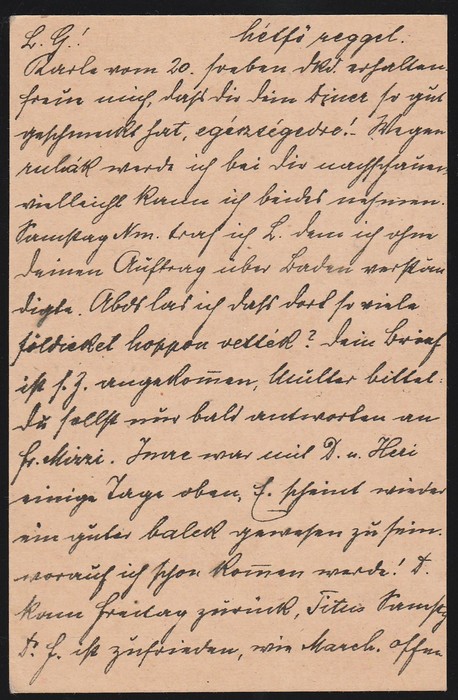 L. G.! hétfö reggel.
Karte vom 20. soeben dkd. erhalten.
freue mich, dass dir dein Diner so gut
geschmeckt hat, egészségedre! Wegen
ruhák werde ich bei dir nachschauen,
vielleicht kann ich beides nehmen.
Samstag Nm. traf ich L. dem ich ohne
deinen Auftrag über Baden verstän
digte. Abds las ich dass dort so viele
földieket hoppon vették? Dein Brief
ist s. Z. angekom̅en, Mutter bittet
du sollst nur bald antworten an
Fr. Mizzi. Imre war mit D. u. Heri
einige Tage oben, E. scheint wieder
ein guter balek gewesen zu sein.
worauf ich schon kom̅en werde! D.
kam Freitag zurück, Titus Samstg
Dr. F. ist zufrieden, wie March. offen